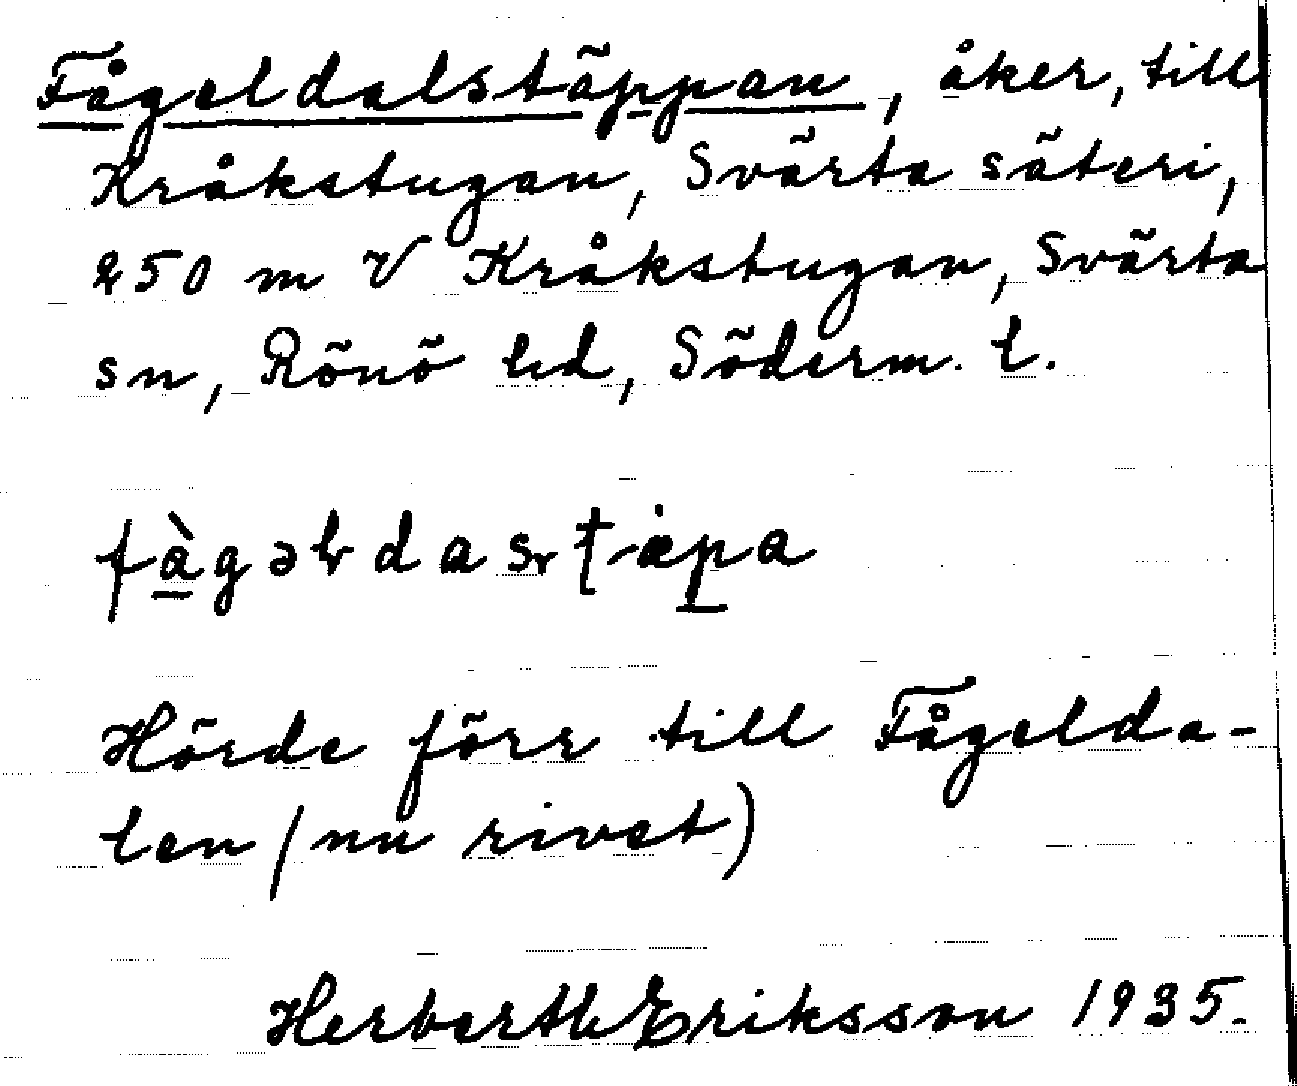 Fågeldalstäppan, åker, till
Kråkstugan, Svärta säteri,
250 m V Kråkstugan, Svärta
sn, Rönö hd, Söderm. l.
Hörde förr till Fågelda-
len (nu rivet)
Herbert Eriksson 1935.